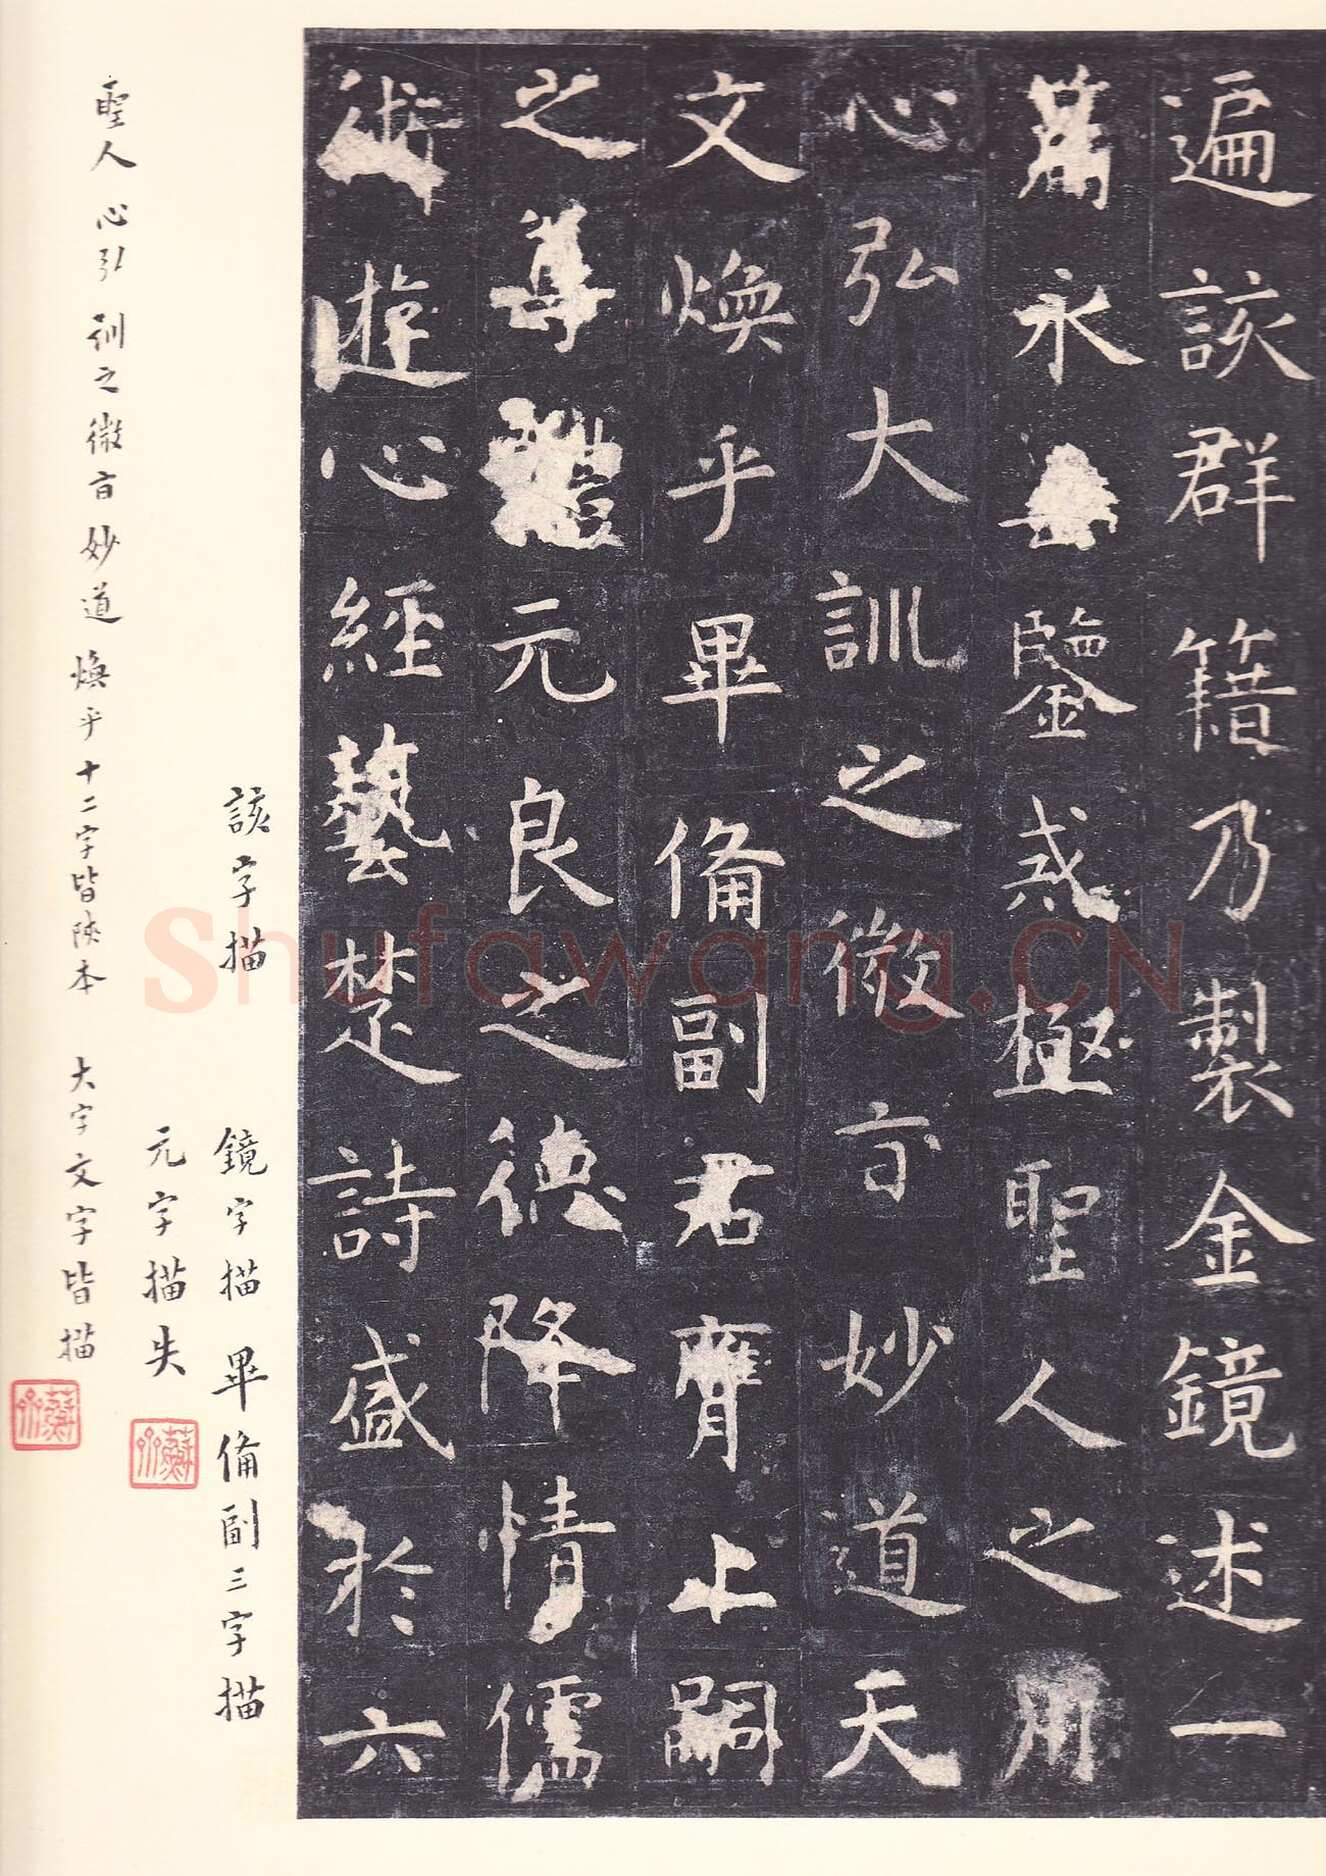 遍該群籍乃製金鏡述一
篇永垂鑒戒極聖人之用
心弘大訓之微旨妙道天
文煥乎畢備副君膺上嗣
之尊體元良之德降情儒
術遊心經藝楚詩盛於六
該字描 鏡字描 畢備副三字描
元字描失
聖人 心弘 訓之微旨妙道 煥乎十二字皆陝本 大字文字皆描
Shufawang.CN